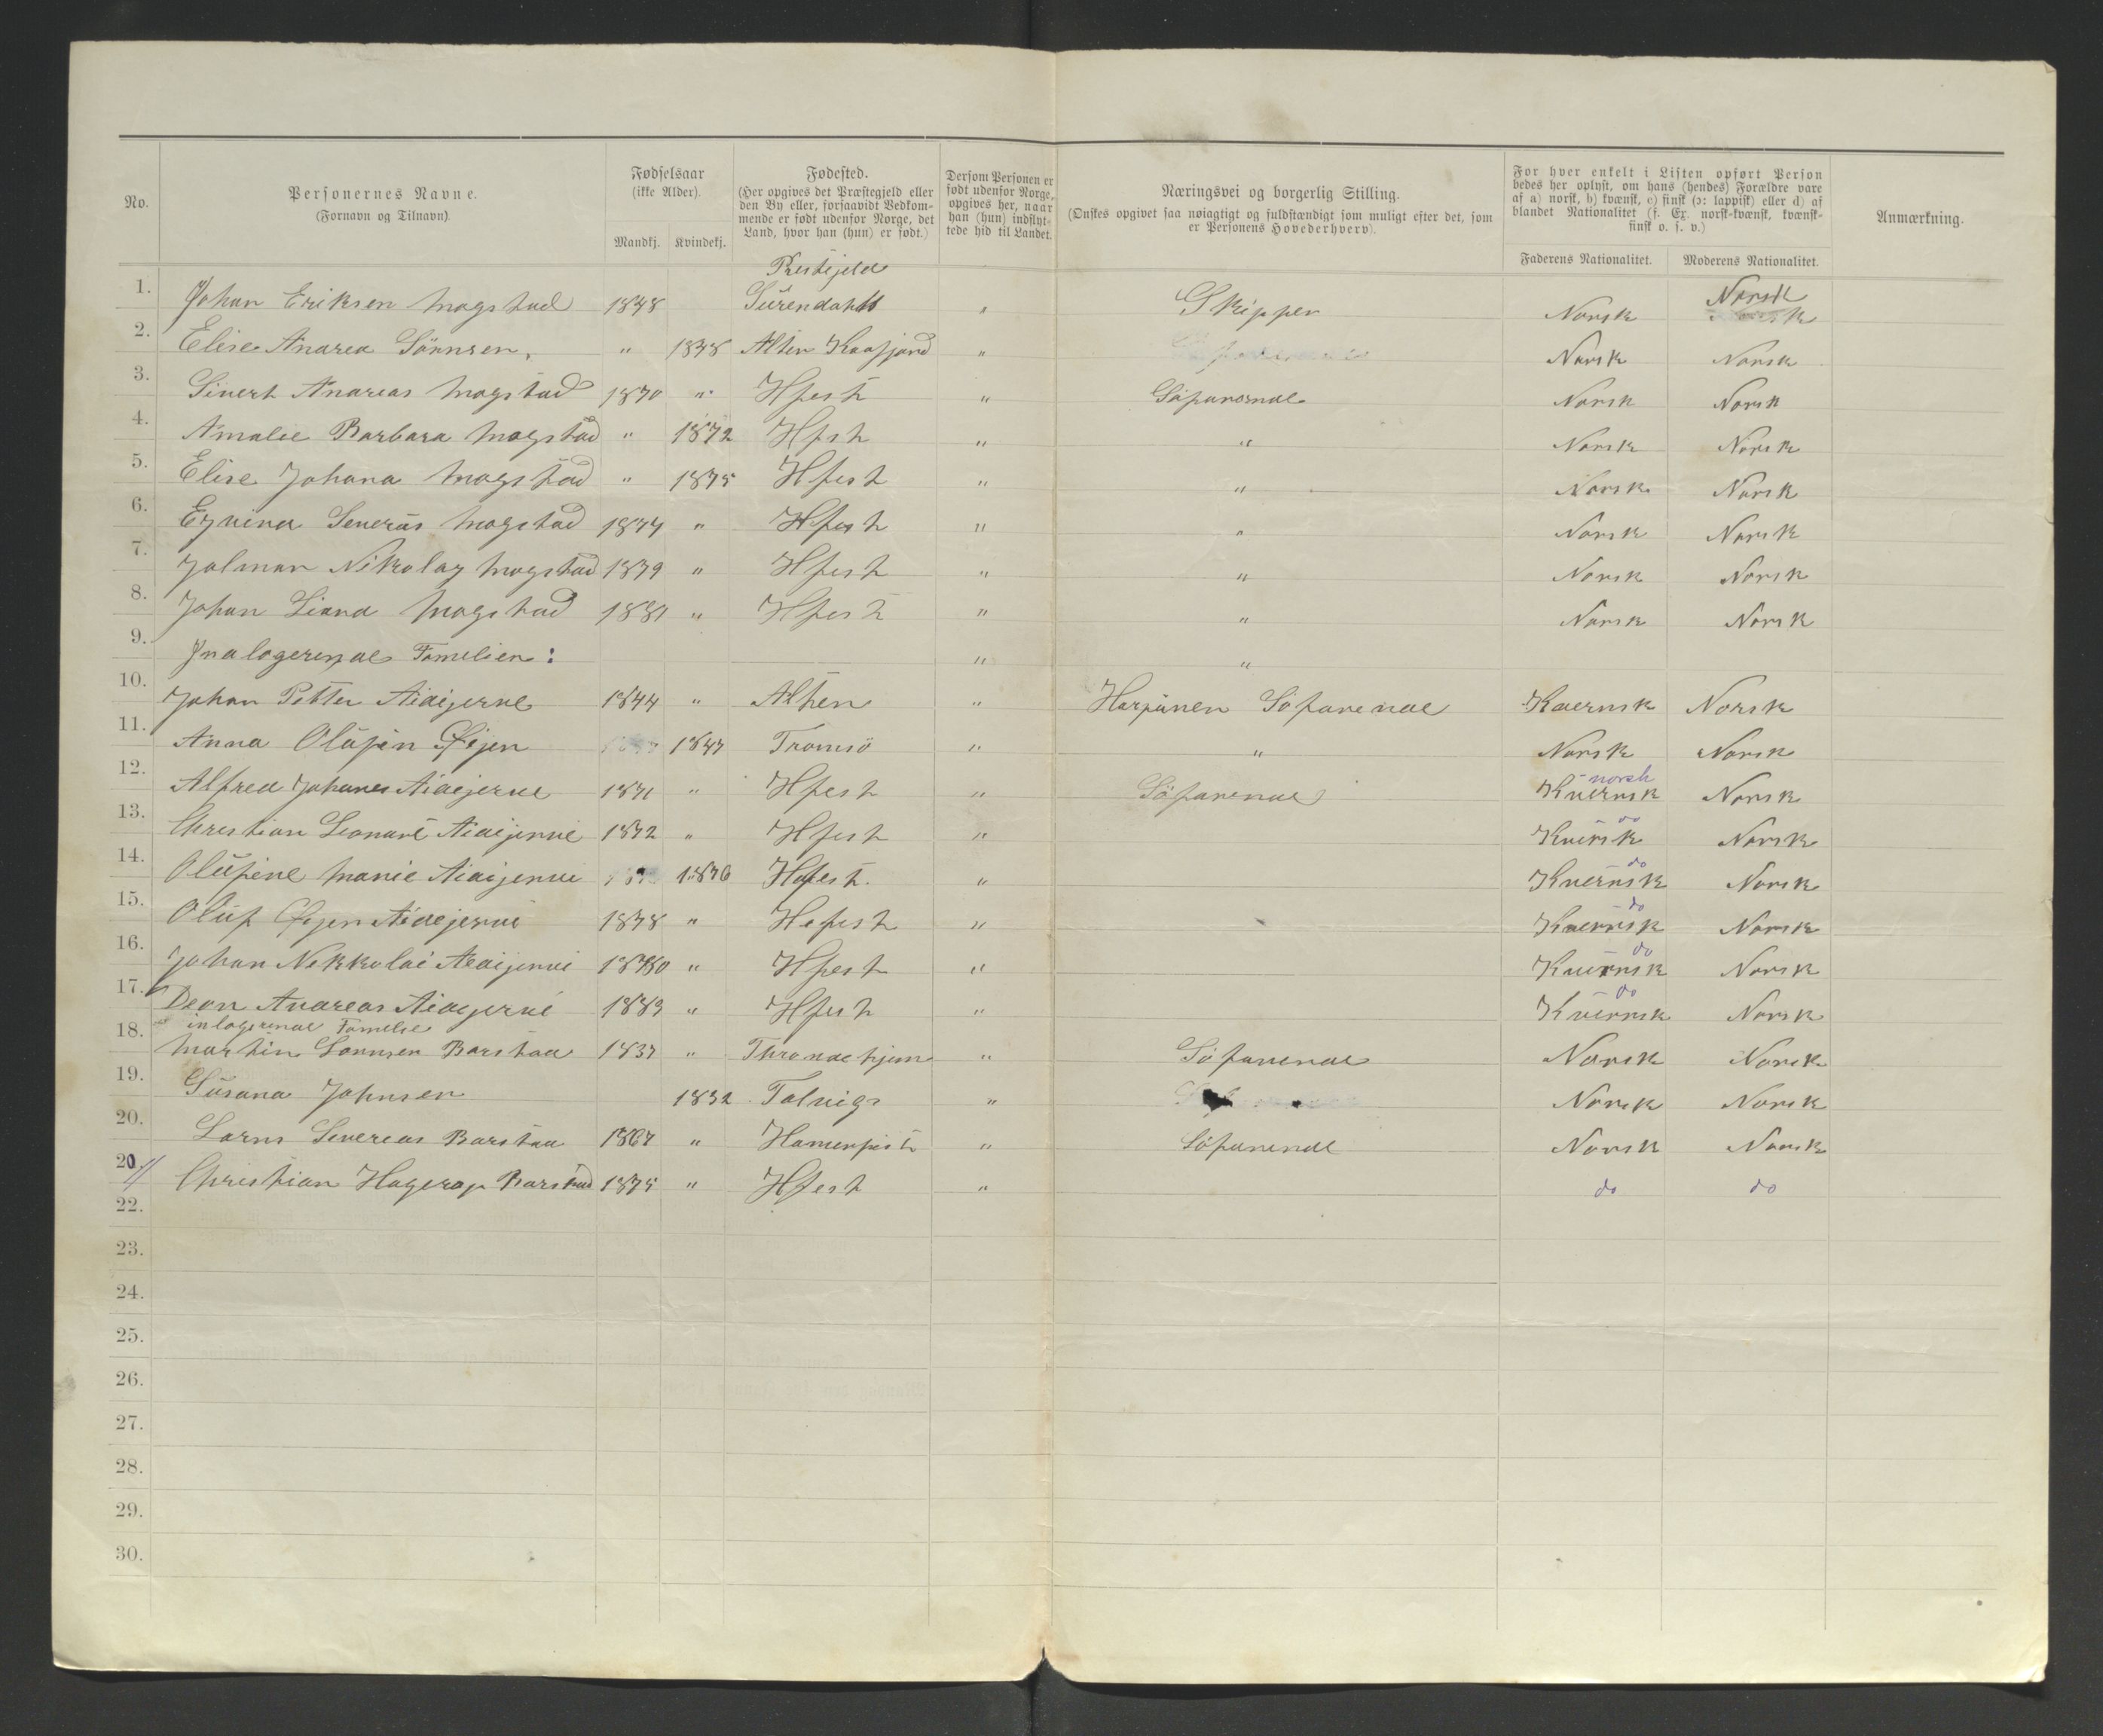 No.
Personernes Navne.
(Fornavn og Tilnavn).
Fødselsaar
(ikke Alder).
Mandkj. Kvindekj.
Fødested.
(Her opgives det Præstegjeld eller
den By eller, forsaavidt Vedkom-
mende er født udenfor Norge, det
Land, hvor han (hun) er født.)
Dersom Personen er
født udenfor Norge,
opgives her, naar
han (hun) indflyt-
tede hid til Landet.
Næringsvei og borgerlig Stilling.
(Ønskes opgivet saa nøiagtigt og fuldstændigt som muligt efter det, som
er Personens Hovederhverv).
For hver enkelt i Listen opført Person
bedes her oplyst, om hans (hendes) Forældre vare
af a) norsk, b) kvænsk, c) finsk (ɔ: lappisk) eller d) af
blandet Nationalitet (f. Ex. norsk-kvænsk, kvænsk-
finsk o. s. v.)
Faderens Nationalitet. Moderens Nationalitet.
Anmærkning.
Prestejeld
1. Johan Eriksen Mogstad 1848 Surendahl " Skipper Norsk Norsk
2. Elise Andrea Sönnsen, " 1848 Alten Kaafjord " Norsk Norsk
3. Sivert Andreas Mogstad 1870 " Hfest " Söfarende Norsk Norsk
4. Amalie Barbara Mogstad " 1872 Hfst " " Norsk Norsk
5. Elise Johana Mogstad " 1875 Hfest " " Norsk Norsk
6. Edvind Severin Mogstad 1877 " Hfest " " Norsk Norsk
7. Jalmar Nikolay Mogstad 1879 " Hfest " " Norsk Norsk
8. Johan Mogstad 1881 " Hfest " " Norsk Norsk
9. Indlogerende Familien: " "
10. Johan Petter Aidijerve 1844 " Alten " Harpunen Söfarende Kvernsk Norsk
11. Anna Olufin Øijen 1847 Tromsö " " Norsk Norsk
norsk
12. Alfred Johanes Aidejerve 1871 " Hfest " Söfarende Kvernsk Norsk
do
13. Christian Leonard Aidijervi 1872 " Hfest " Kvensk Norsk
do
14. Olufine Marie Aidijervi 1876 Hafest " Kvernsk Norsk
do
15. Oluf Øijen Aidejervi 1878 " Hefest " Kvernsk Norsk
do
16. Johan Nekkolai Aidijervi 1880 " Hfest " Kvernsk Norsk
do
17. Andreas Aidejervi 1883 " Hfest " Kvernsk Norsk
inlogerende Famelie
18. Martin Sonnsen Barstad 1837 " Throndehjem " Söfarende Norsk Norsk
19. Susana Johnsen 1832 Talvigs " Norsk Norsk
20. Severeas Barstad 1867 " Hamerfest " Söfarende Norsk Norsk
20. Christian Hagerop Barstad 1875 " Hfest " do do
22.
23.
24.
25.
26.
27.
28.
29.
30.